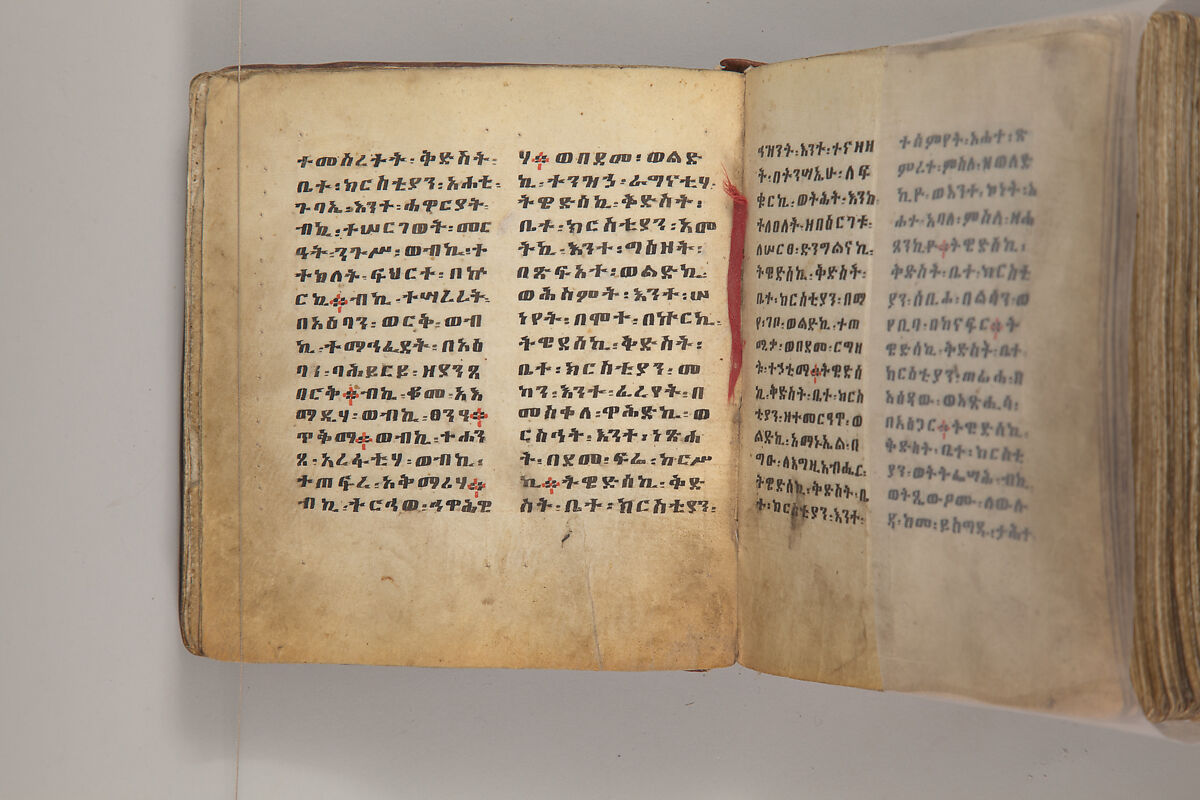 ተመሰረትት፡ቅድሽት፡
ቤተ፡ክርስቲያን፡አሐቲ፡
ጉባኤ፡እንተ፡ሐዋርያት፡
ብኪ፡ተሠርገወት፡መር
ዓት፡ንጉሥ፡ወብኪ፡ተ
ተክለት፡ፍህርተ፡በኵ
ርኪ፡ብኪ፡ተሣረረት፡
በአዕባን፡ወርቅ፡ወብ
ኪ፡ተማኅፈደት፡በአዕ
ባነ፡ባሕይርይ፡ዘያንጸ
በርቅ፡ብኪ፡ቆመ፡አእ
ማዲሃ፡ወብኪ፡
ጥቅማ፡ወብኪ፡ተሐን
ጸ፡አረፋቲሃ፡ወብኪ፡
ተጠፍረ፡አቅማሪሃ፡
ብኪ፡ተርኅወ፡ኆዋሕዊ
ሃ፡ወበደመ፡ወልድ
ኪ፡ተንዝኃ፡ራግናቲሃ፡
ትዌድሰኪ፡ቅድስት፡
ቤተ፡ክርስቲያን፡አመ
ትኪ፡እንተ፡ግዕዘት፡
በጽፍአተ፡ወልድኪ፡
ወሕስምት፡እንተ፡ሠ
ነየት፡በሞተ፡በኵርኪ፡
ትዌደሰኪ፡ቅድስት፡
ቤተ፡ክርስቲያን፡መ
ካን፡እንተ፡ፈረየት፡በ
መስቀለ፡ዋሕድኪ፡ወ
ርስዓት፡እንተ፡ነጽሐ
ት፡በደመ፡ፍሬ፡ከርሥ
ኪ፡ትዌድሰኪ፡ቅድ
ስት፡ቤተ፡ክርስቲያን፡
ዓዝንት፡እንተ፡ተናዘዘ
ት፡በትንሣኤሁ፡ለፍ
ቁርኪ፡ወትሕት፡እንከ
ተለዐለት፡ዘበዕርገቱ፡
ለሠርፀ፡ድንግልናኪ፡
ትዌድሰኪ፡ቅድስት፡
ቤተ፡ክርስቲያን፡በማ
የ፡ገቦ፡ወልድኪ፡ተጠ
ሚቃ፡ወበደመ፡ርግዘ
ቱ፡ተኃቲማ፡ትዌድሰ
ኪ፡ቅድስት፡ቤተ፡ክርስ
ቲያን፡ዘተመርዓዋ፡ወ
ልድኪ፡አማኑኤል፡በ
ግዑ፡ለእግዚአብሔር፡
ትዌድሰኪ፡ቅድስት፡ቤ
ተ፡ክርስቲያን፡እንተ፡
ተሰምየት፡አሐተ፡
ምረተ፡ምስለ፡ዘወለድ
ኪዮ፡ወእንተ፡ኮነት፡አ
ሐተ፡አባለ፡ምስለ፡ዘሐ
ፀንኪዮ፡ትዌድሰኪ፡
ቅድስት፡ቤተ፡ክርስቲ
ያን፡ሰቢሐ፡በልሳን፡ወ
የቢባ፡በከናፍር፡ት
ዌድሰኪ፡ቅድስት፡ቤተ
ክርስቲያን፡ጠፊሐ፡በ
እዕዳው፡ወአጽሒሳ፡
በአዕጋር፡ትዌድሰኪ፡
ቅድስት፡ቤተ፡ክርስቲ
ያን፡ወትትፌሣሕ፡ብኪ፡
ወትጼውዖሙ፡ለውሉ
ዳ፡ከመ፡ይስግዱ፡ታሕተ